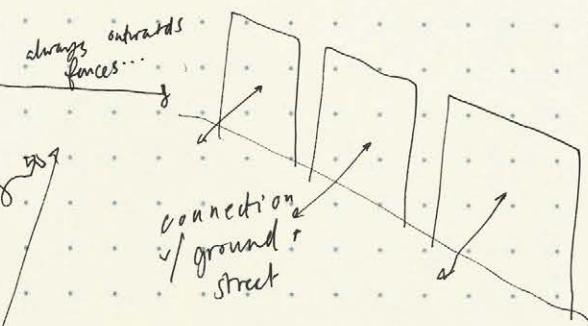 always outwards
fences...
connection
w/ ground +
street